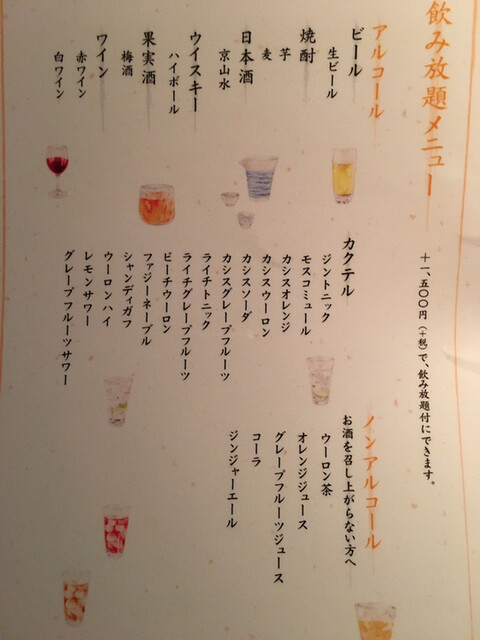 飲み放題メニュー
十一、五〇〇円(+税)で、飲み放題付にできます。
アルコール
ビール
生ビール
焼酎
芋
麦
日本酒
京山水
ウイスキー
ハイボール
果実酒
梅酒
ワイン
赤ワイン
白ワイン
カクテル
ジントニック
モスコミュール
カシスオレンジ
カシスウーロン
カシスソーダ
カシスグレープフルーツ
ライチトニック
ライチグレープフルーツ
ピーチウーロン
ファジーネーブル
シャンディガフ
ウーロンハイ
レモンサワー
グレープフルーツサワー
ノンアルコール
お酒を召し上がらない方へ
ウーロン茶
オレンジジュース
グレープフルーツジュース
コーラ
ジンジャーエール